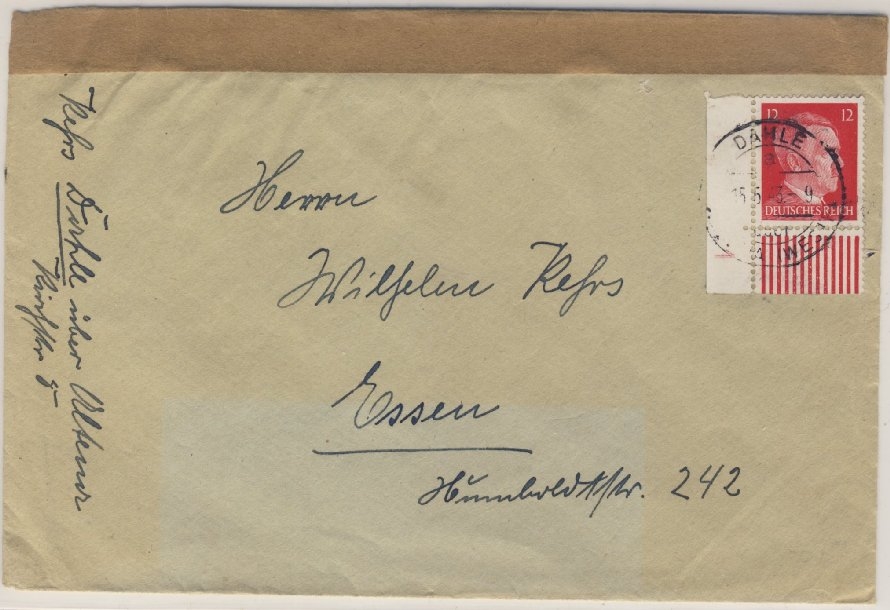 Kehrs Dahle über Altena
Kirchstr 5
Herrn
Wilhelm Kehrs
Essen
Humboldtstr. 242
12 12
DEUTSCHES REICH
DAHLE
a
(WESTF
1